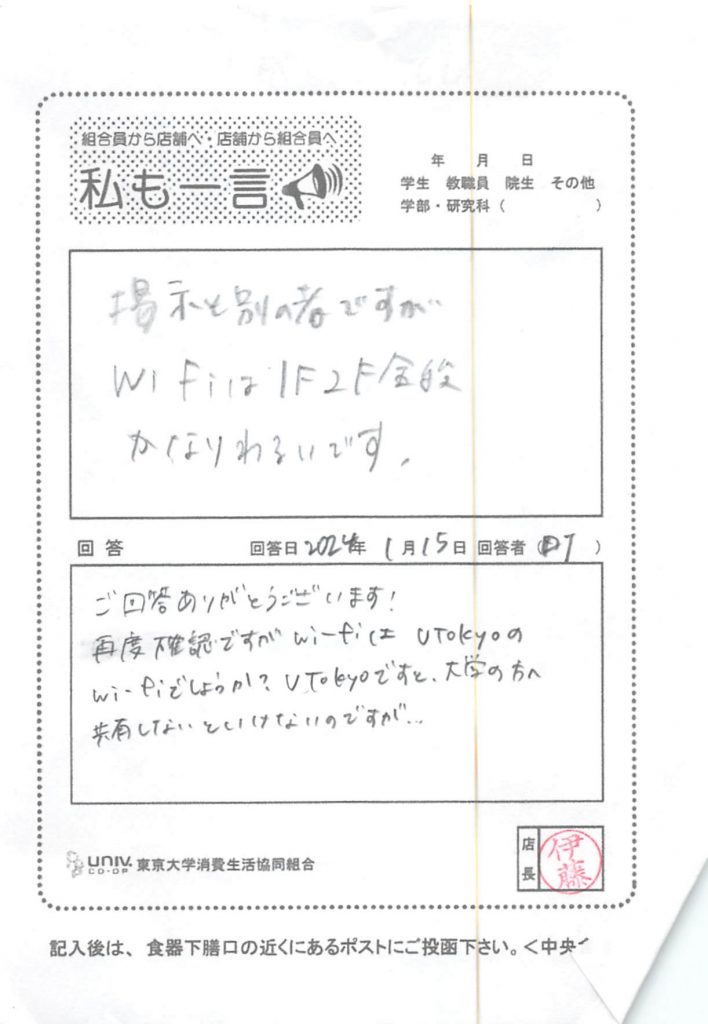 組合員から店舗へ・店舗から組合員へ
私も一言
年 月 日
学生 教職員 院生 その他
学部・研究科( )
掲示と別の者ですが
Wi Fiは1F2F全般
かなりわるいです。
回答 回答日2024年1月15日 回答者( )
ご回答ありがとうございます!
再度確認ですがwi-fiは UTokyoの
wi-fiでしょうか? UTokyoですと、大学の方へ
共有しないといけないのですが...
UNIV. CO-OP 東京大学消費生活協同組合
店長 伊藤
記入後は、食器下膳口の近くにあるポストにご投函下さい。<中央